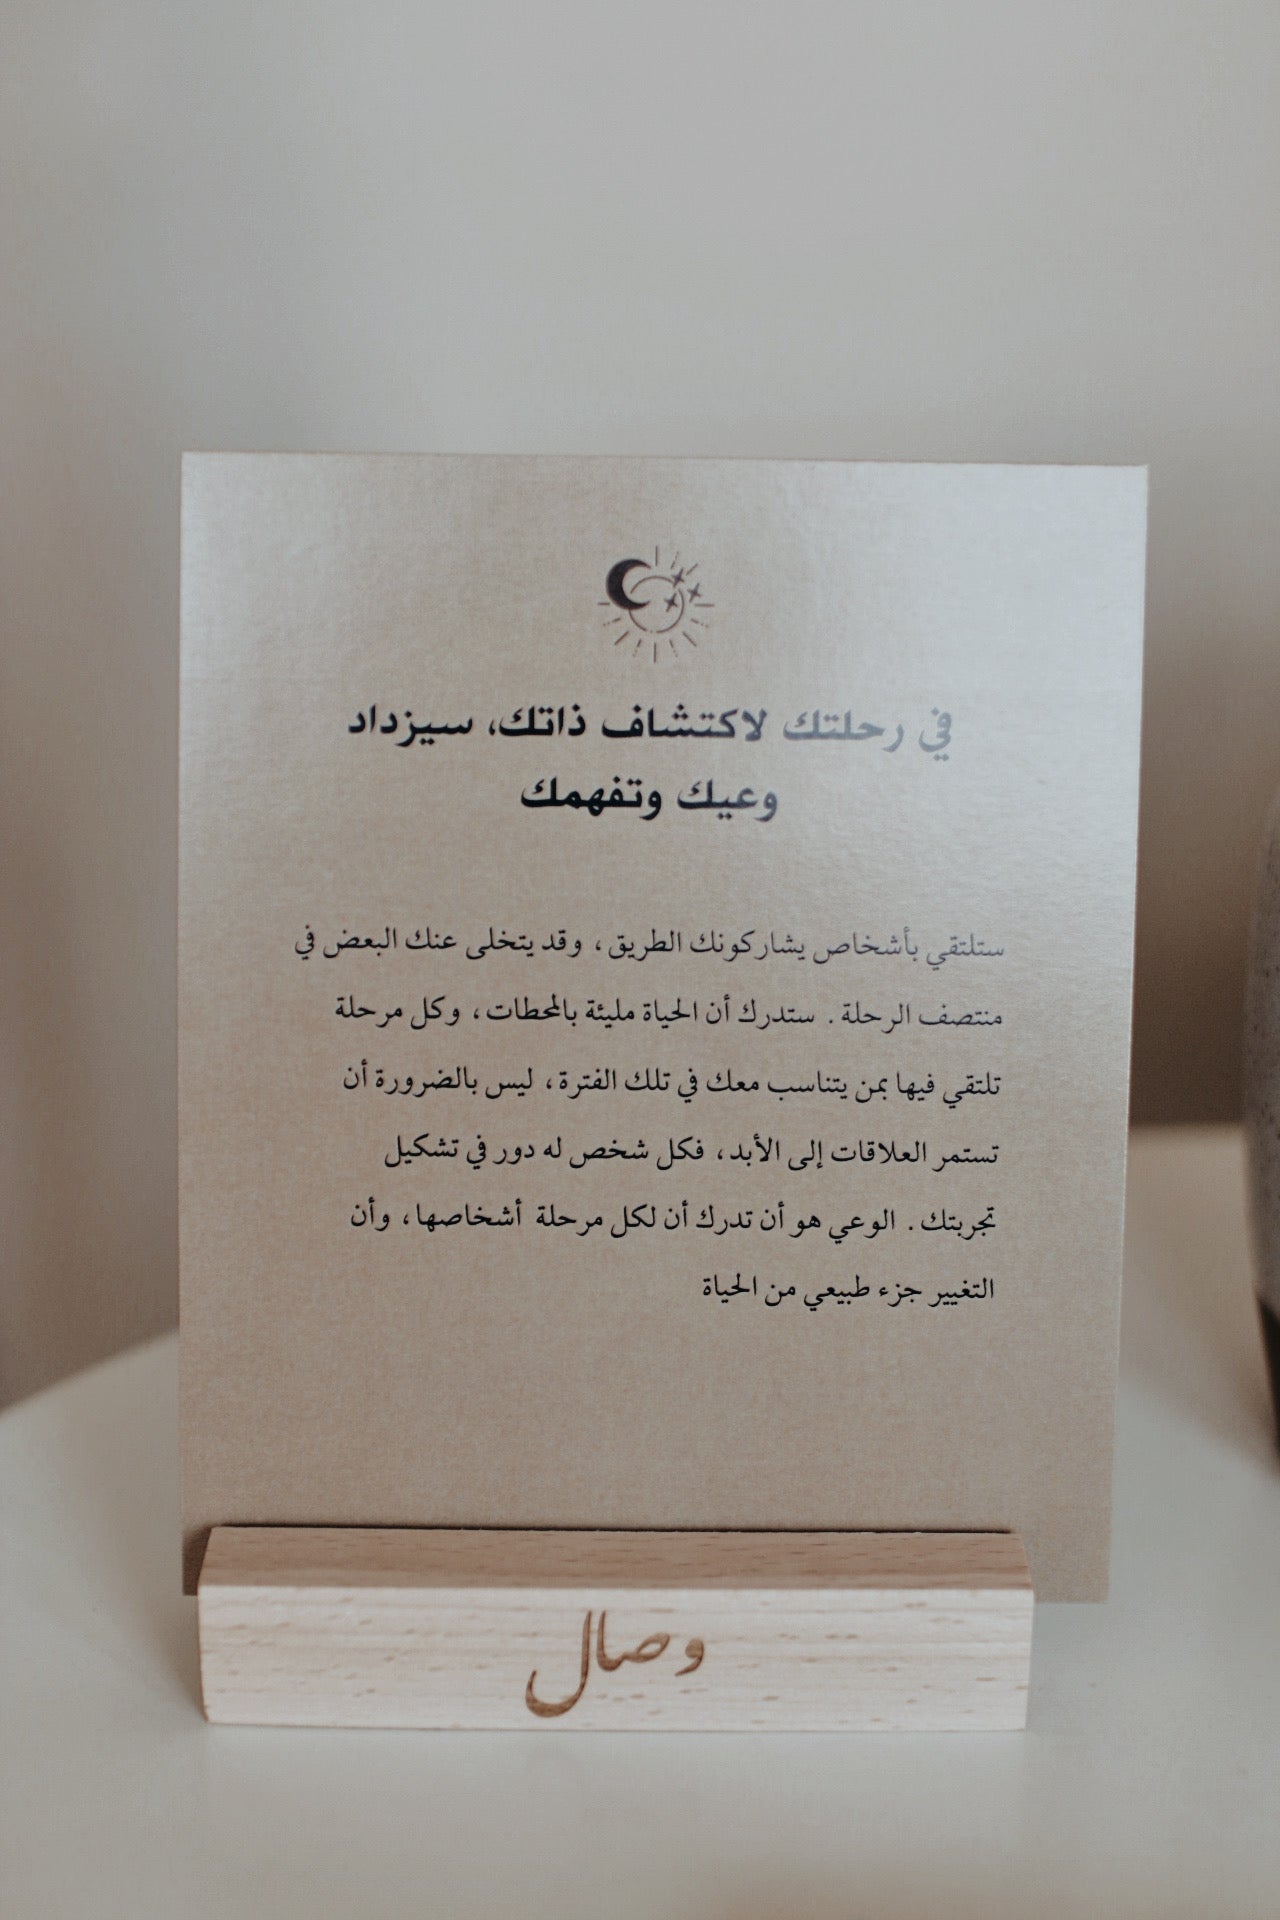 في رحلتك لاكتشاف ذاتك، سيزداد
وعيك وتفهمك
ستلتقي بأشخاص يشاركونك الطريق، وقد يتخلى عنك البعض في
منتصف الرحلة. ستدرك أن الحياة مليئة بالمحطات، وكل مرحلة
تلتقي فيها بمن يتناسب معك في تلك الفترة، ليس بالضرورة أن
تستمر العلاقات إلى الأبد، فكل شخص له دور في تشكيل
تجربتك. الوعي هو أن تدرك أن لكل مرحلة أشخاصها، وأن
التغيير جزء طبيعي من الحياة
وصال